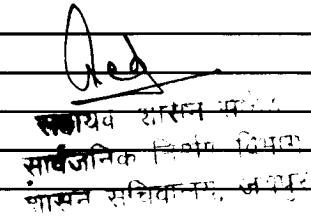 सहायक शासन सचिव
सार्वजनिक निर्माण विभाग
शासन सचिवालय, जयपुर